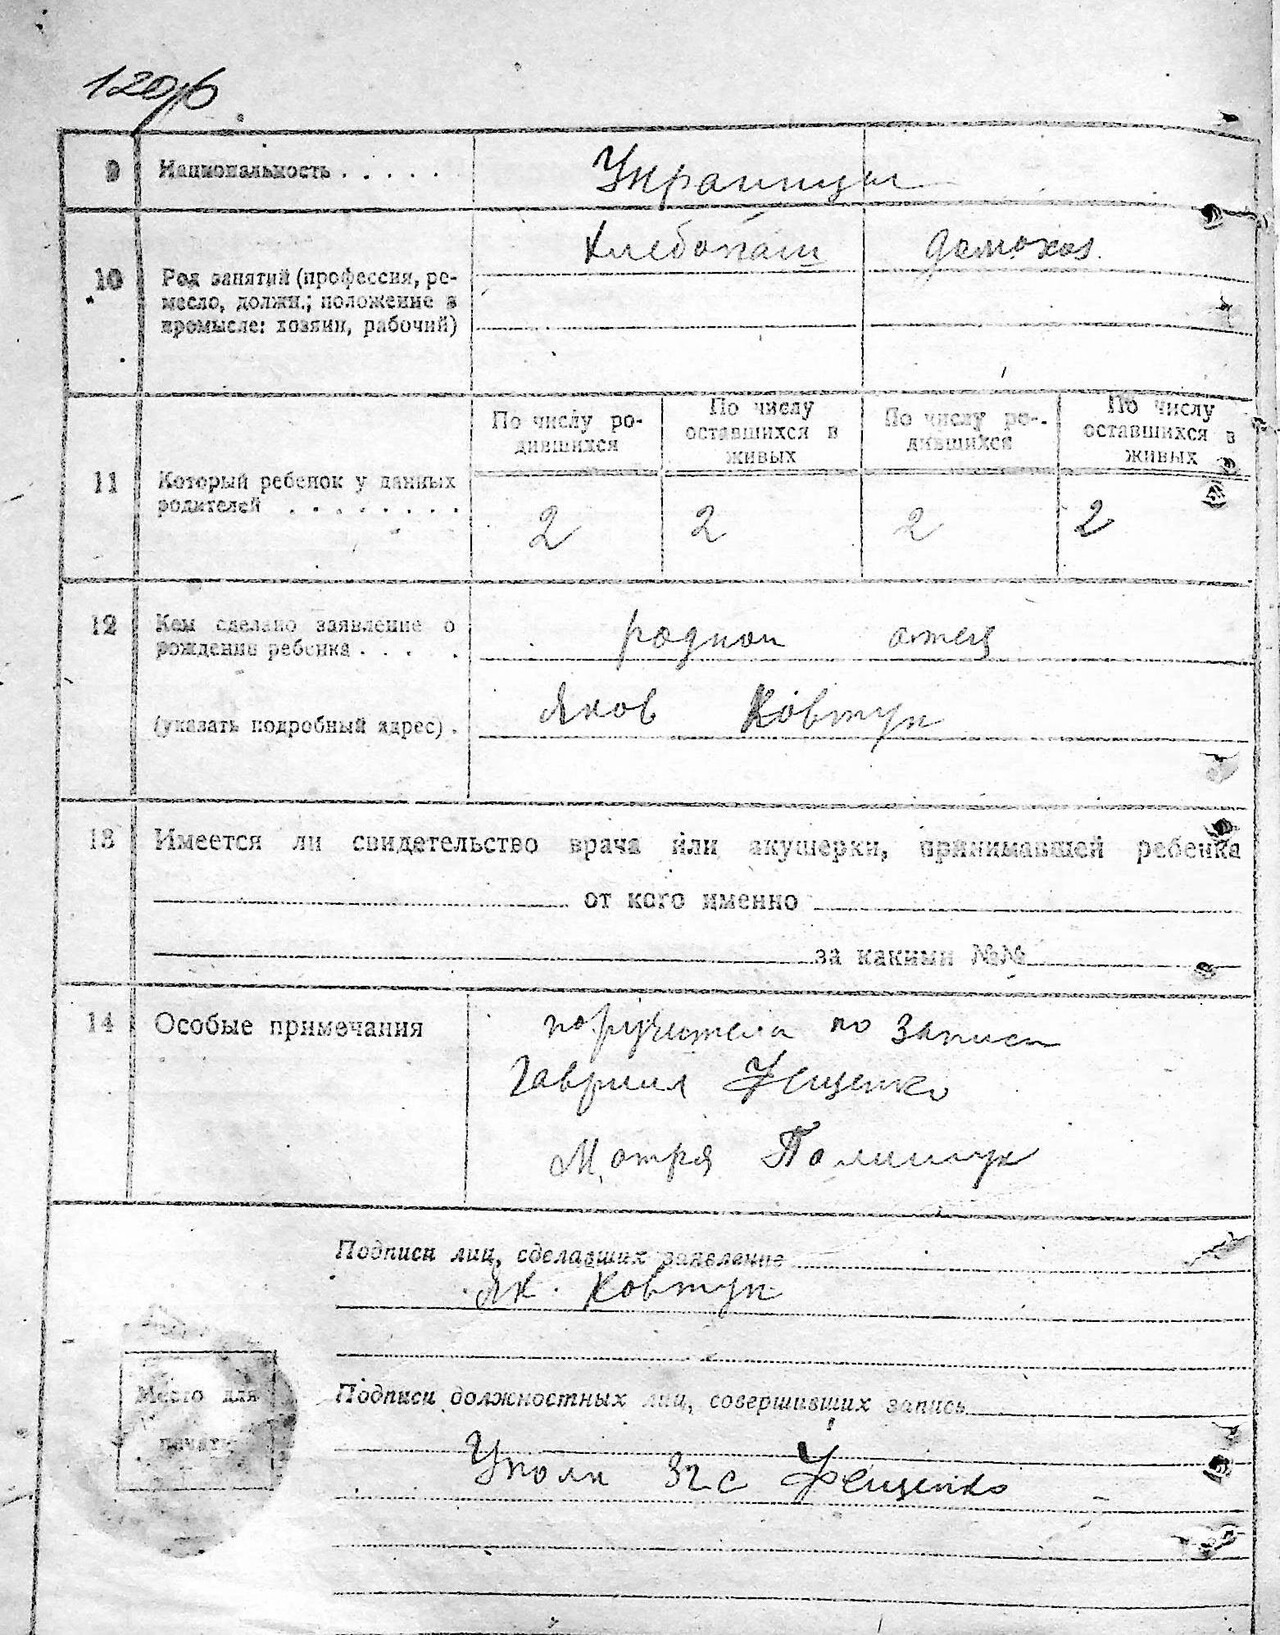 120об
9 Национальность . . . . . Украинцы
10 Род занятий (профессия, ре-
месло, должн.; положение в
промысле: хозяин, рабочий)
Хлебопаш домохоз.
11 Который ребенок у данных
родителей . . . . . . . .
По числу ро-
дившихся
По числу
оставшихся в
живых
По числу ро-
дившихся
По числу
оставшихся в
живых
2 2 2 2
12 Кем сделано заявление о
рождении ребенка . . . .
родной отец
(указать подробный адрес) .
Яков Ковтун
13 Имеется ли свидетельство врача или акушерки, принимавшей ребенка
от кого именно
за какими №№
14 Особые примечания
поручителя по записи
Гавриил Фещенко
Мотря Полищук
Подписи лиц, сделавших заявление
Як. Ковтун
Место для
печати
Подписи должностных лиц, совершивших запись
Уполн Загс Фещенко